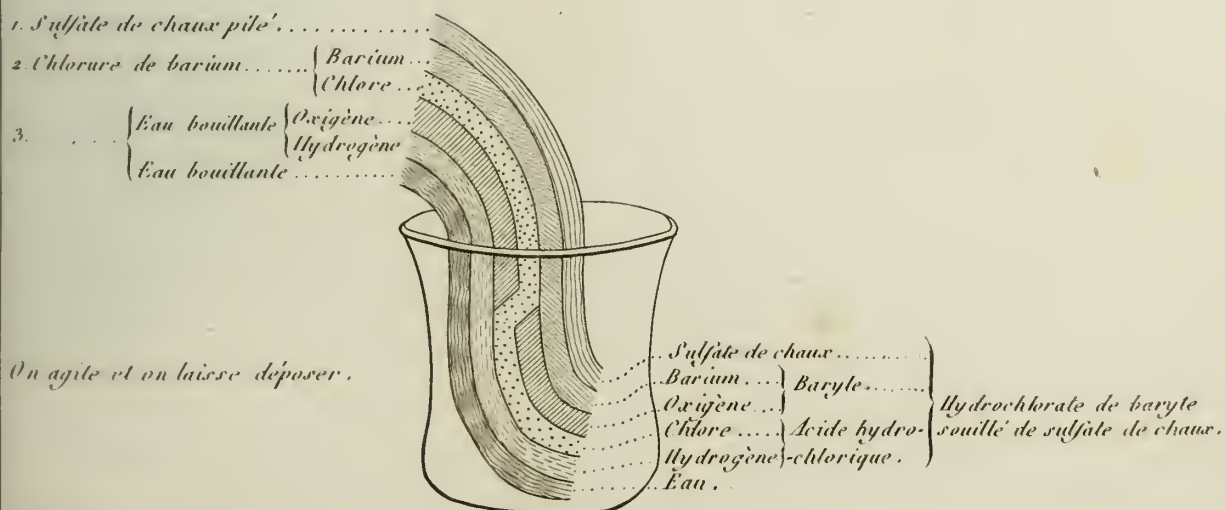 1. Sulfate de chaux pilé
2. Chlorure de barium { Barium
Chlore
3. { Eau bouillante { Oxigène
Hydrogène
Eau bouillante
On agite et on laisse déposer.
Sulfate de chaux
Barium
Oxigène
} Baryte
Chlore
Hydrogène
} Acide hydro-
-chlorique.
Eau.
Hydrochlorate de baryte
souillé de sulfate de chaux.